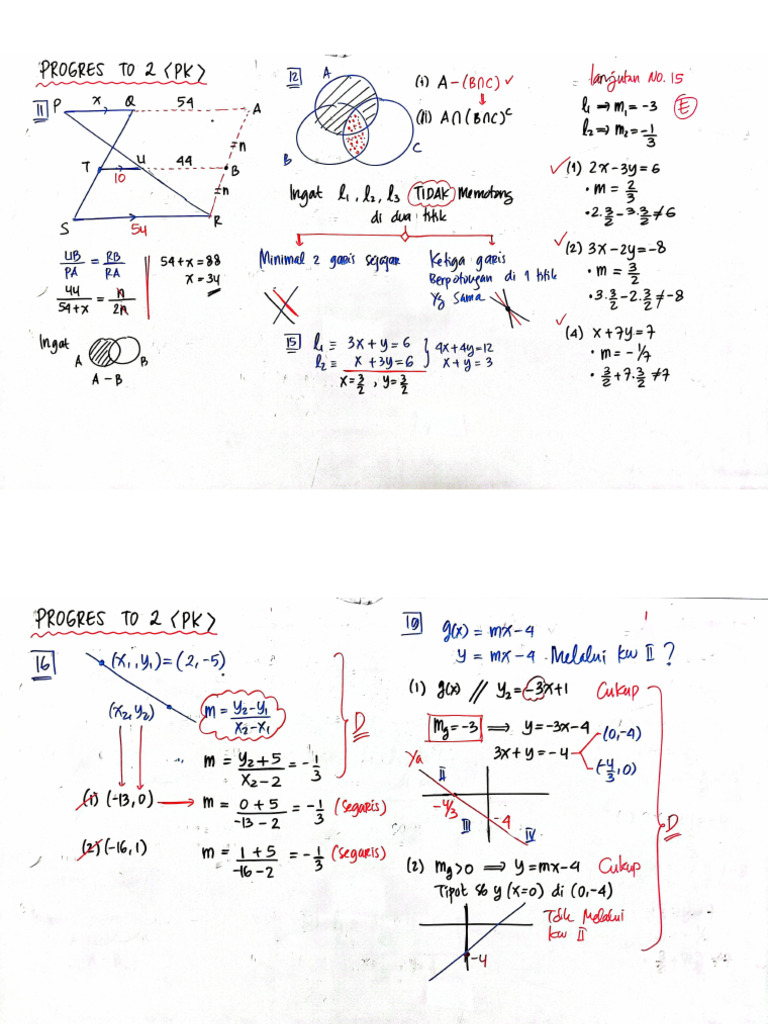 PROGRES TO 2 <PK>
11
P x Q 54 A
=n
T u 44 B
10
=n
S 54 R
UB/PA = RB/RA
44/(54+x) = n/2n
54+x=88
x=34
Ingat
A B
A - B
12
A
B C
(i) A - (B∩C) ✓
(ii) A∩(B∩C)ᶜ
Ingat l₁, l₂, l₃ TIDAK Memotong
di dua titik
Minimal 2 garis sejajar
Ketiga garis
Berpotongan di 1 titik
Yg sama
15
l₁ ≡ 3x + y = 6
l₂ ≡ x + 3y = 6
4x+4y=12
x + y = 3
x=3/2, y=3/2
lanjutan No. 15
l₁ ⇒ m₁ = -3
l₂ ⇒ m₂ = -1/3
E
✓(1) 2x-3y=6
• m = 2/3
• 2.3/2 - 3.3/2 ≠ 6
✓(2) 3x-2y=-8
• m = 3/2
• 3.3/2 - 2.3/2 ≠ -8
✓(4) x+7y=7
• m = -1/7
• 3/2 + 7.3/2 ≠ 7
PROGRES TO 2 <PK>
16
(x₁,y₁)=(2,-5)
(x₂,y₂)
m = (y₂-y₁)/(x₂-x₁)
m = (y₂+5)/(x₂-2) = -1/3
D
(1) (-13,0) → m = (0+5)/(-13-2) = -1/3 (segaris)
(2) (-16,1) m = (1+5)/(-16-2) = -1/3 (segaris)
19
g(x) = mx-4
y = mx-4 Melalui kw II ?
(1) g(x) // y₂=-3x+1 Cukup
mg=-3 ⇒ y=-3x-4
3x+y=-4
(0,-4)
(-4/3,0)
Ya
II
-4/3
III -4 IV
D
(2) mg>0 ⇒ y=mx-4 Cukup
Tipot sb y (x=0) di (0,-4)
Tdk Melalui
kw II
-4